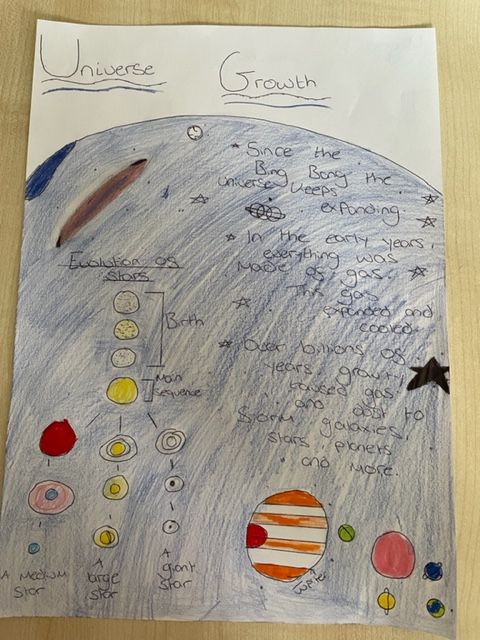 Universe Growth
* Since the
Bing Bang the
universe keeps
expanding.
* In the early years,
everything was
made os gas.
This gas
expanded and
cooled.
* Over billions os
years gravity
caused gas
and dust to
Sorm galaxies,
stars, planets
and more.
Evolution os
stars
Birth
Main
sequence
A medium
star
A
large
star
A
giant
star
Jupiter